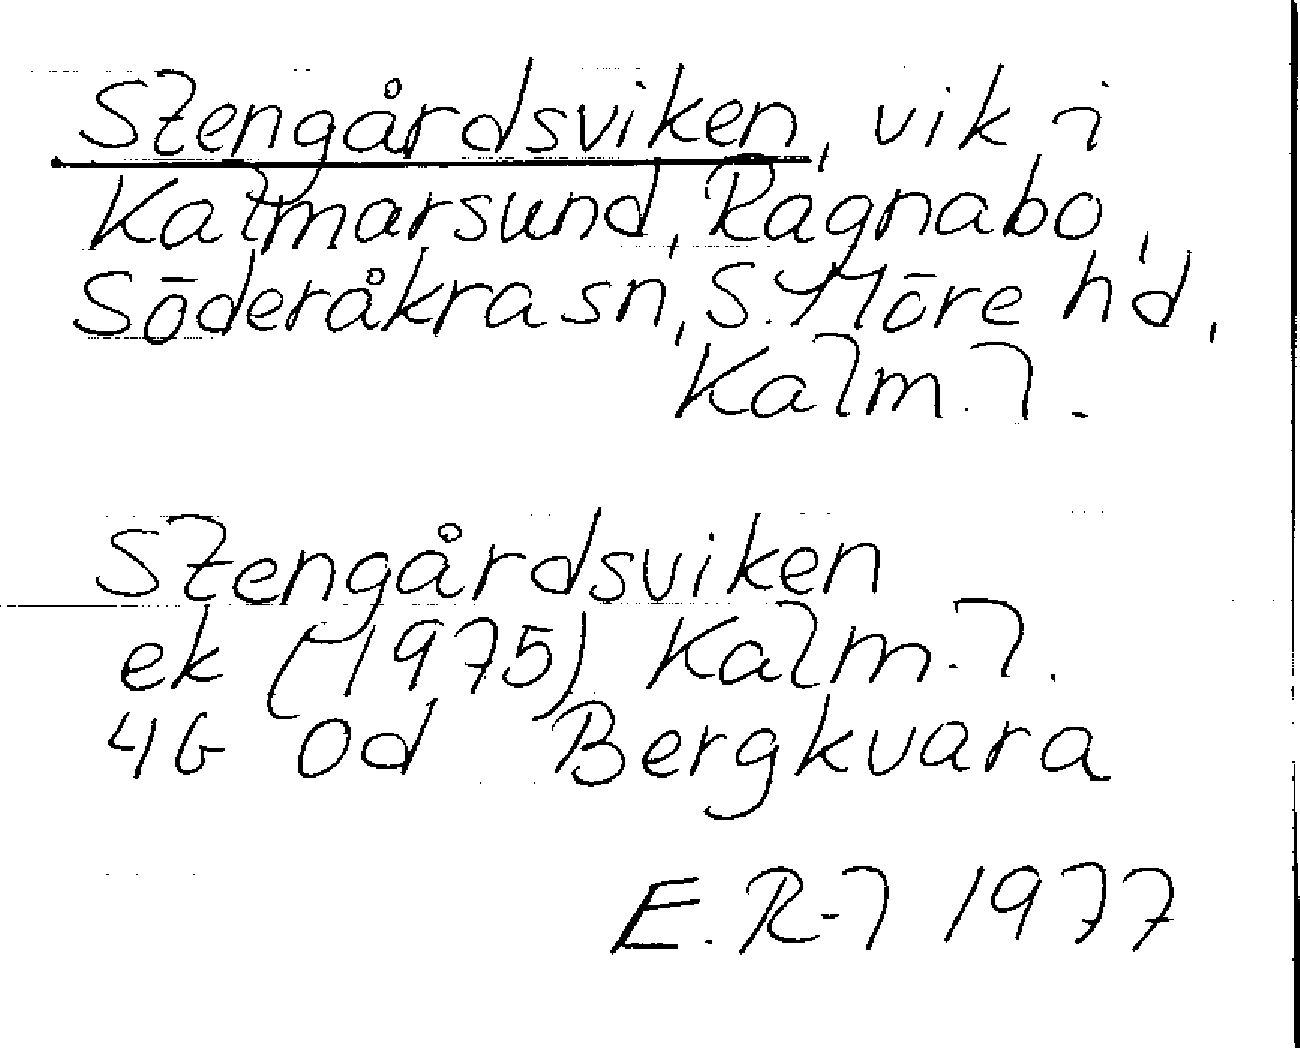 Stengårdsviken, vik i
Kalmarsund, Ragnabo,
Söderåkra sn, S. Möre hd,
Kalm. l.
Stengårdsviken
ek (1975) Kalm. l.
4G Od Bergkvara
E. R-l 1977